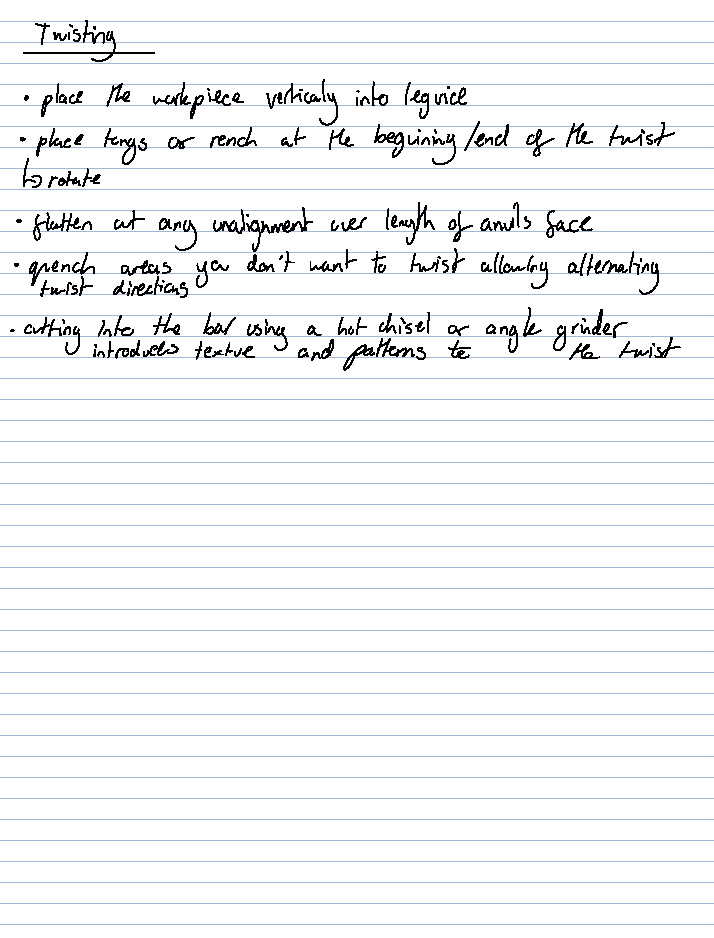 Twisting
• place the workpiece verticaly into legvice
• place tongs or rench at the beguining/end of the twist
↳ rotate
• flatten out any unalignment over length of anvils face
• quench areas you don't want to twist allowing alternating
twist directions
• cutting into the bar using a hot chisel or angle grinder
introduces texture and patterns to the twist